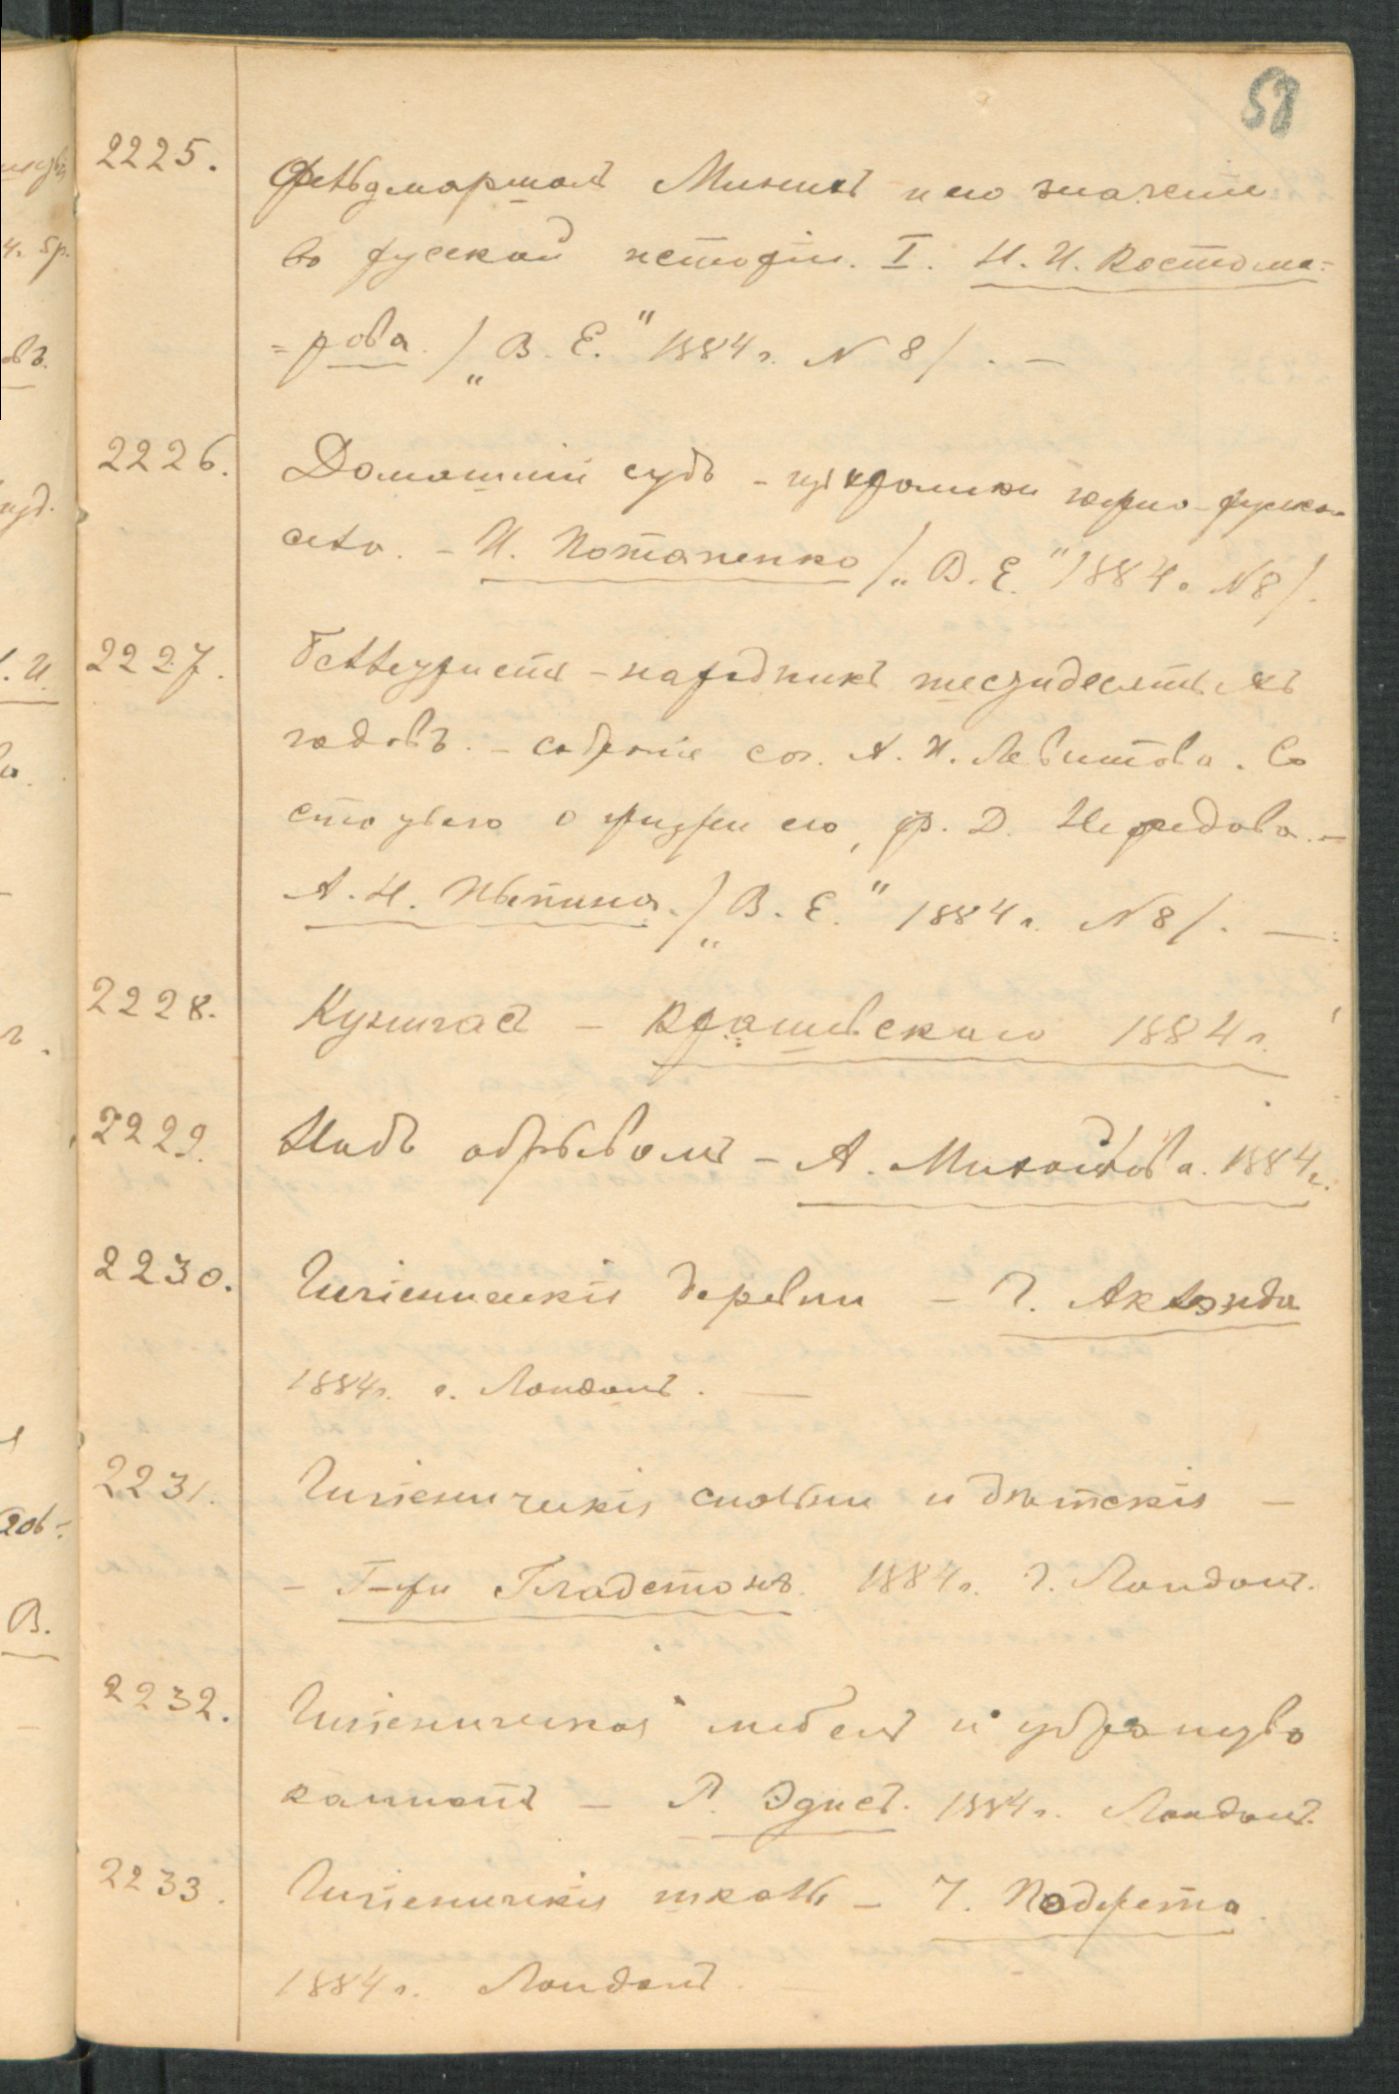 58
2225. Фельдмаршалъ Минихъ и его значеніе
въ русской исторіи. I. Н. И. Костома=
=рова. /„В. Е." 1884 г. N 8/. —
2226. Домашній судъ - изъ хроники южно-русскаго
села. - И. Потапенко /„В. Е." 1884 г. N 8/.
2227. Беллетристъ - народникъ шестидесятыхъ
годовъ. - Собраніе соч. А. И. Левитова. Со
статьею о жизни его, Ф. Д. Нефедова. —
А. Н. Пыпина. /„В. Е." 1884 г. N 8/. —
2228. Кунигасъ - Крашевскаго 1884 г.
2229. Надъ обрывомъ - А. Михайлова. 1884 г.
2230. Гигіеническія деревни - Г. Акланда
1884 г. г. Лондонъ. —
2231. Гигіеническія спальни и дѣтскія —
- Г-жи Гладстонъ. 1884 г. г. Лондонъ.
2232. Гигіеническая мебель и убранство
комнатъ - Р. Эдисъ. 1884 г. Лондонъ.
2233. Гигіеническія школы - Г.
1884 г. Лондонъ